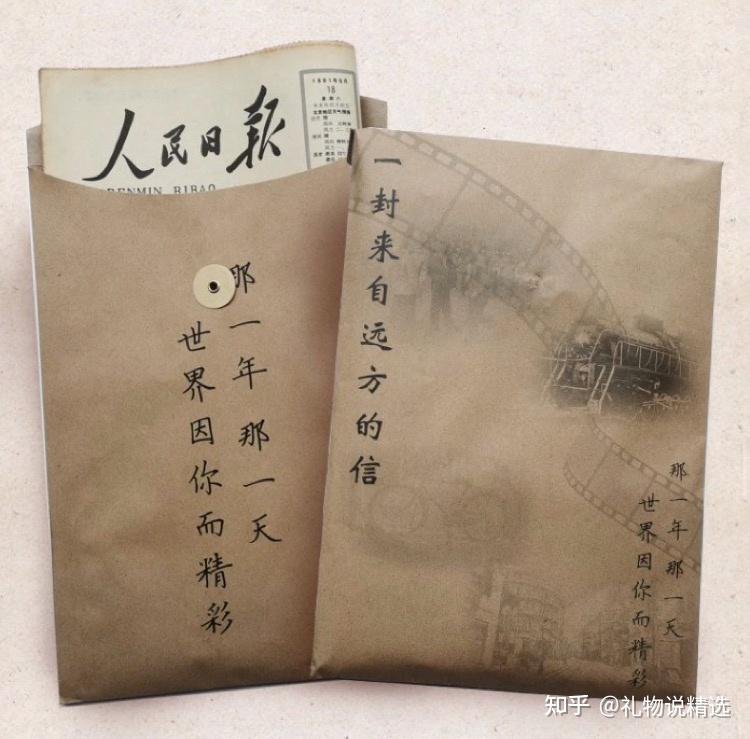 人民日报
RENMIN RIBAO
18
那一年 那一天
世界因你而精彩
一封来自远方的信
那一年 那一天
世界因你而精彩
知乎 @礼物说精选